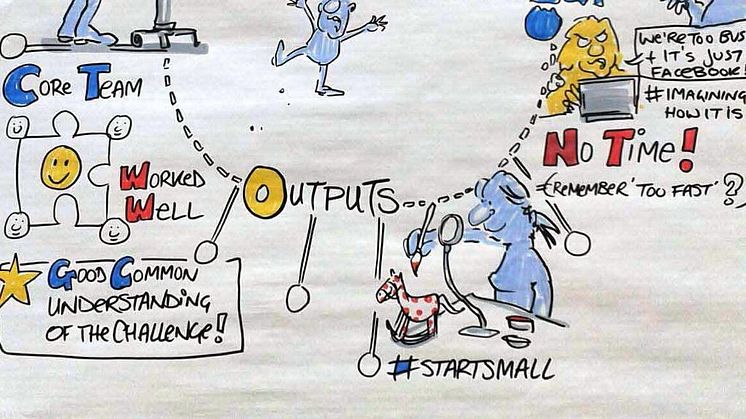 Core Team
Worked
Well
Good Common
understanding
of the challenge!
Outputs
#STARTSMALL
We're too bus
+ it's just
Facebook!
#imagining
how it is
No Time!
(Remember 'too fast'?